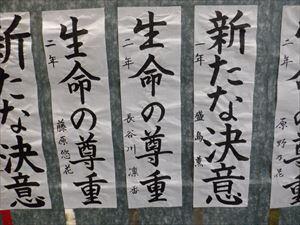 原野乃花
二年
新たな決意
一年 盛島薫
生命の尊重
二年 長谷川凛香
生命の尊重
二年 藤原悠花
新たな決意